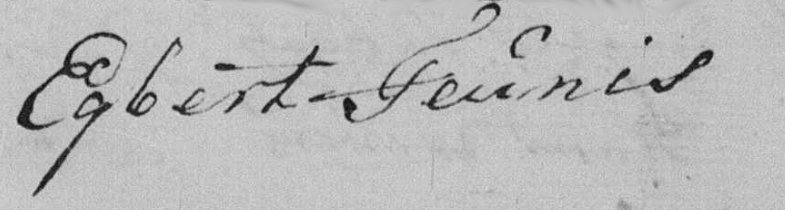 Egbert Teunis